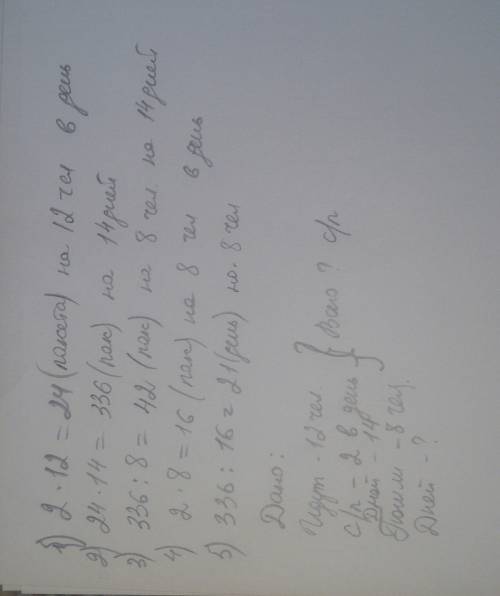 1) 2 · 12 = 24 (пакета) на 12 чел в день
2) 24 · 14 = 336 (пак) на 14 дней
3) 336 : 8 = 42 (пак) на 8 чел. на 14 дней
4) 2 · 8 = 16 (пак) на 8 чел в день
5) 336 : 16 = 21 (день) на 8 чел
Дано:
Идут - 12 чел.
с/п - 2 в день } Всего ? с/п
Дней - 14
Пошли - 8 чел.
Дней - ?